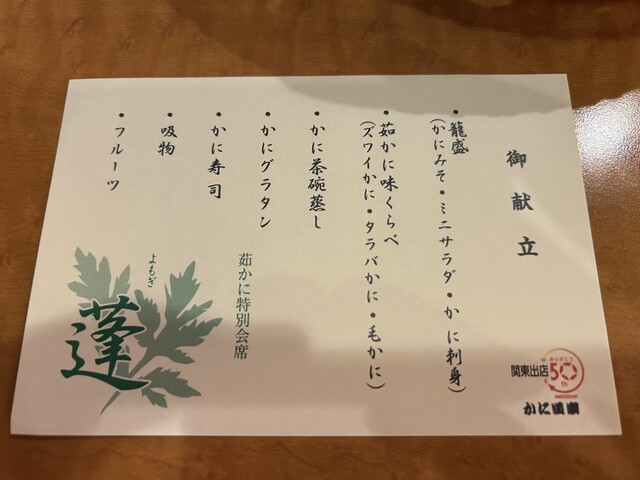 御献立
・籠盛
(かにみそ・ミニサラダ・かに刺身)
・茹かに味くらべ
(ズワイかに・タラバかに・毛かに)
・かに茶碗蒸し
・かにグラタン
・かに寿司
・吸物
・フルーツ
茹かに特別会席
よもぎ
蓬
関東出店
ありがとう
50th
ANNIVERSARY
かに道楽